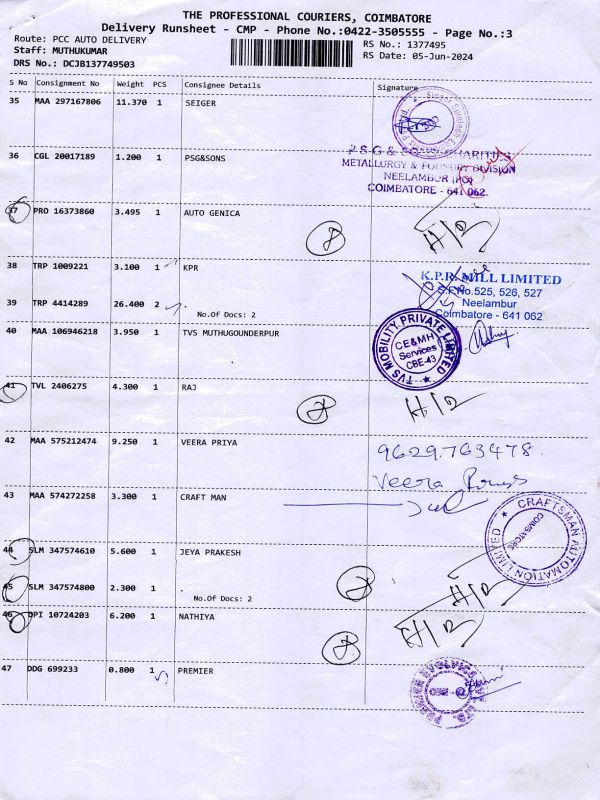 THE PROFESSIONAL COURIERS, COIMBATORE
Delivery Runsheet - CMP - Phone No.:0422-3505555 - Page No.:3
Route: PCC AUTO DELIVERY
Staff: MUTHUKUMAR
DRS No.: DCJB137749503
RS No.: 1377495
RS Date: 05-Jun-2024
S No Consignment No Weight PCS Consignee Details Signature
35 MAA 297167806 11.370 1 SEIGER
36 CGL 20017189 1.200 1 PSG&SONS
P.S.G & SONS CHARITIES
METALLURGY & FOUNDRY DIVISION
NEELAMBUR (PO)
COIMBATORE - 641 062.
37 PRO 16373860 3.495 1 AUTO GENICA
H/D
38 TRP 1009221 3.100 1 KPR
K.P.R. MILL LIMITED
S.F.No.525, 526, 527
Neelambur
Coimbatore - 641 062
39 TRP 4414289 26.400 2
No.Of Docs: 2
40 MAA 106946218 3.950 1 TVS MUTHUGOUNDERPUR
TVS MOBILITY PRIVATE LIMITED
CE&MH
Services
CBE-43
41 TVL 2406275 4.300 1 RAJ
H/D
42 MAA 575212474 9.250 1 VEERA PRIYA
9629763478
Veera
43 MAA 574272258 3.300 1 CRAFT MAN
CRAFTSMAN AUTOMATION LIMITED
COIMBATORE
44 SLM 347574610 5.600 1 JEYA PRAKESH
45 SLM 347574800 2.300 1
No.Of Docs: 2
H/D
46 DPI 10724203 6.200 1 NATHIYA
H/D
47 DDG 699233 0.800 1 PREMIER